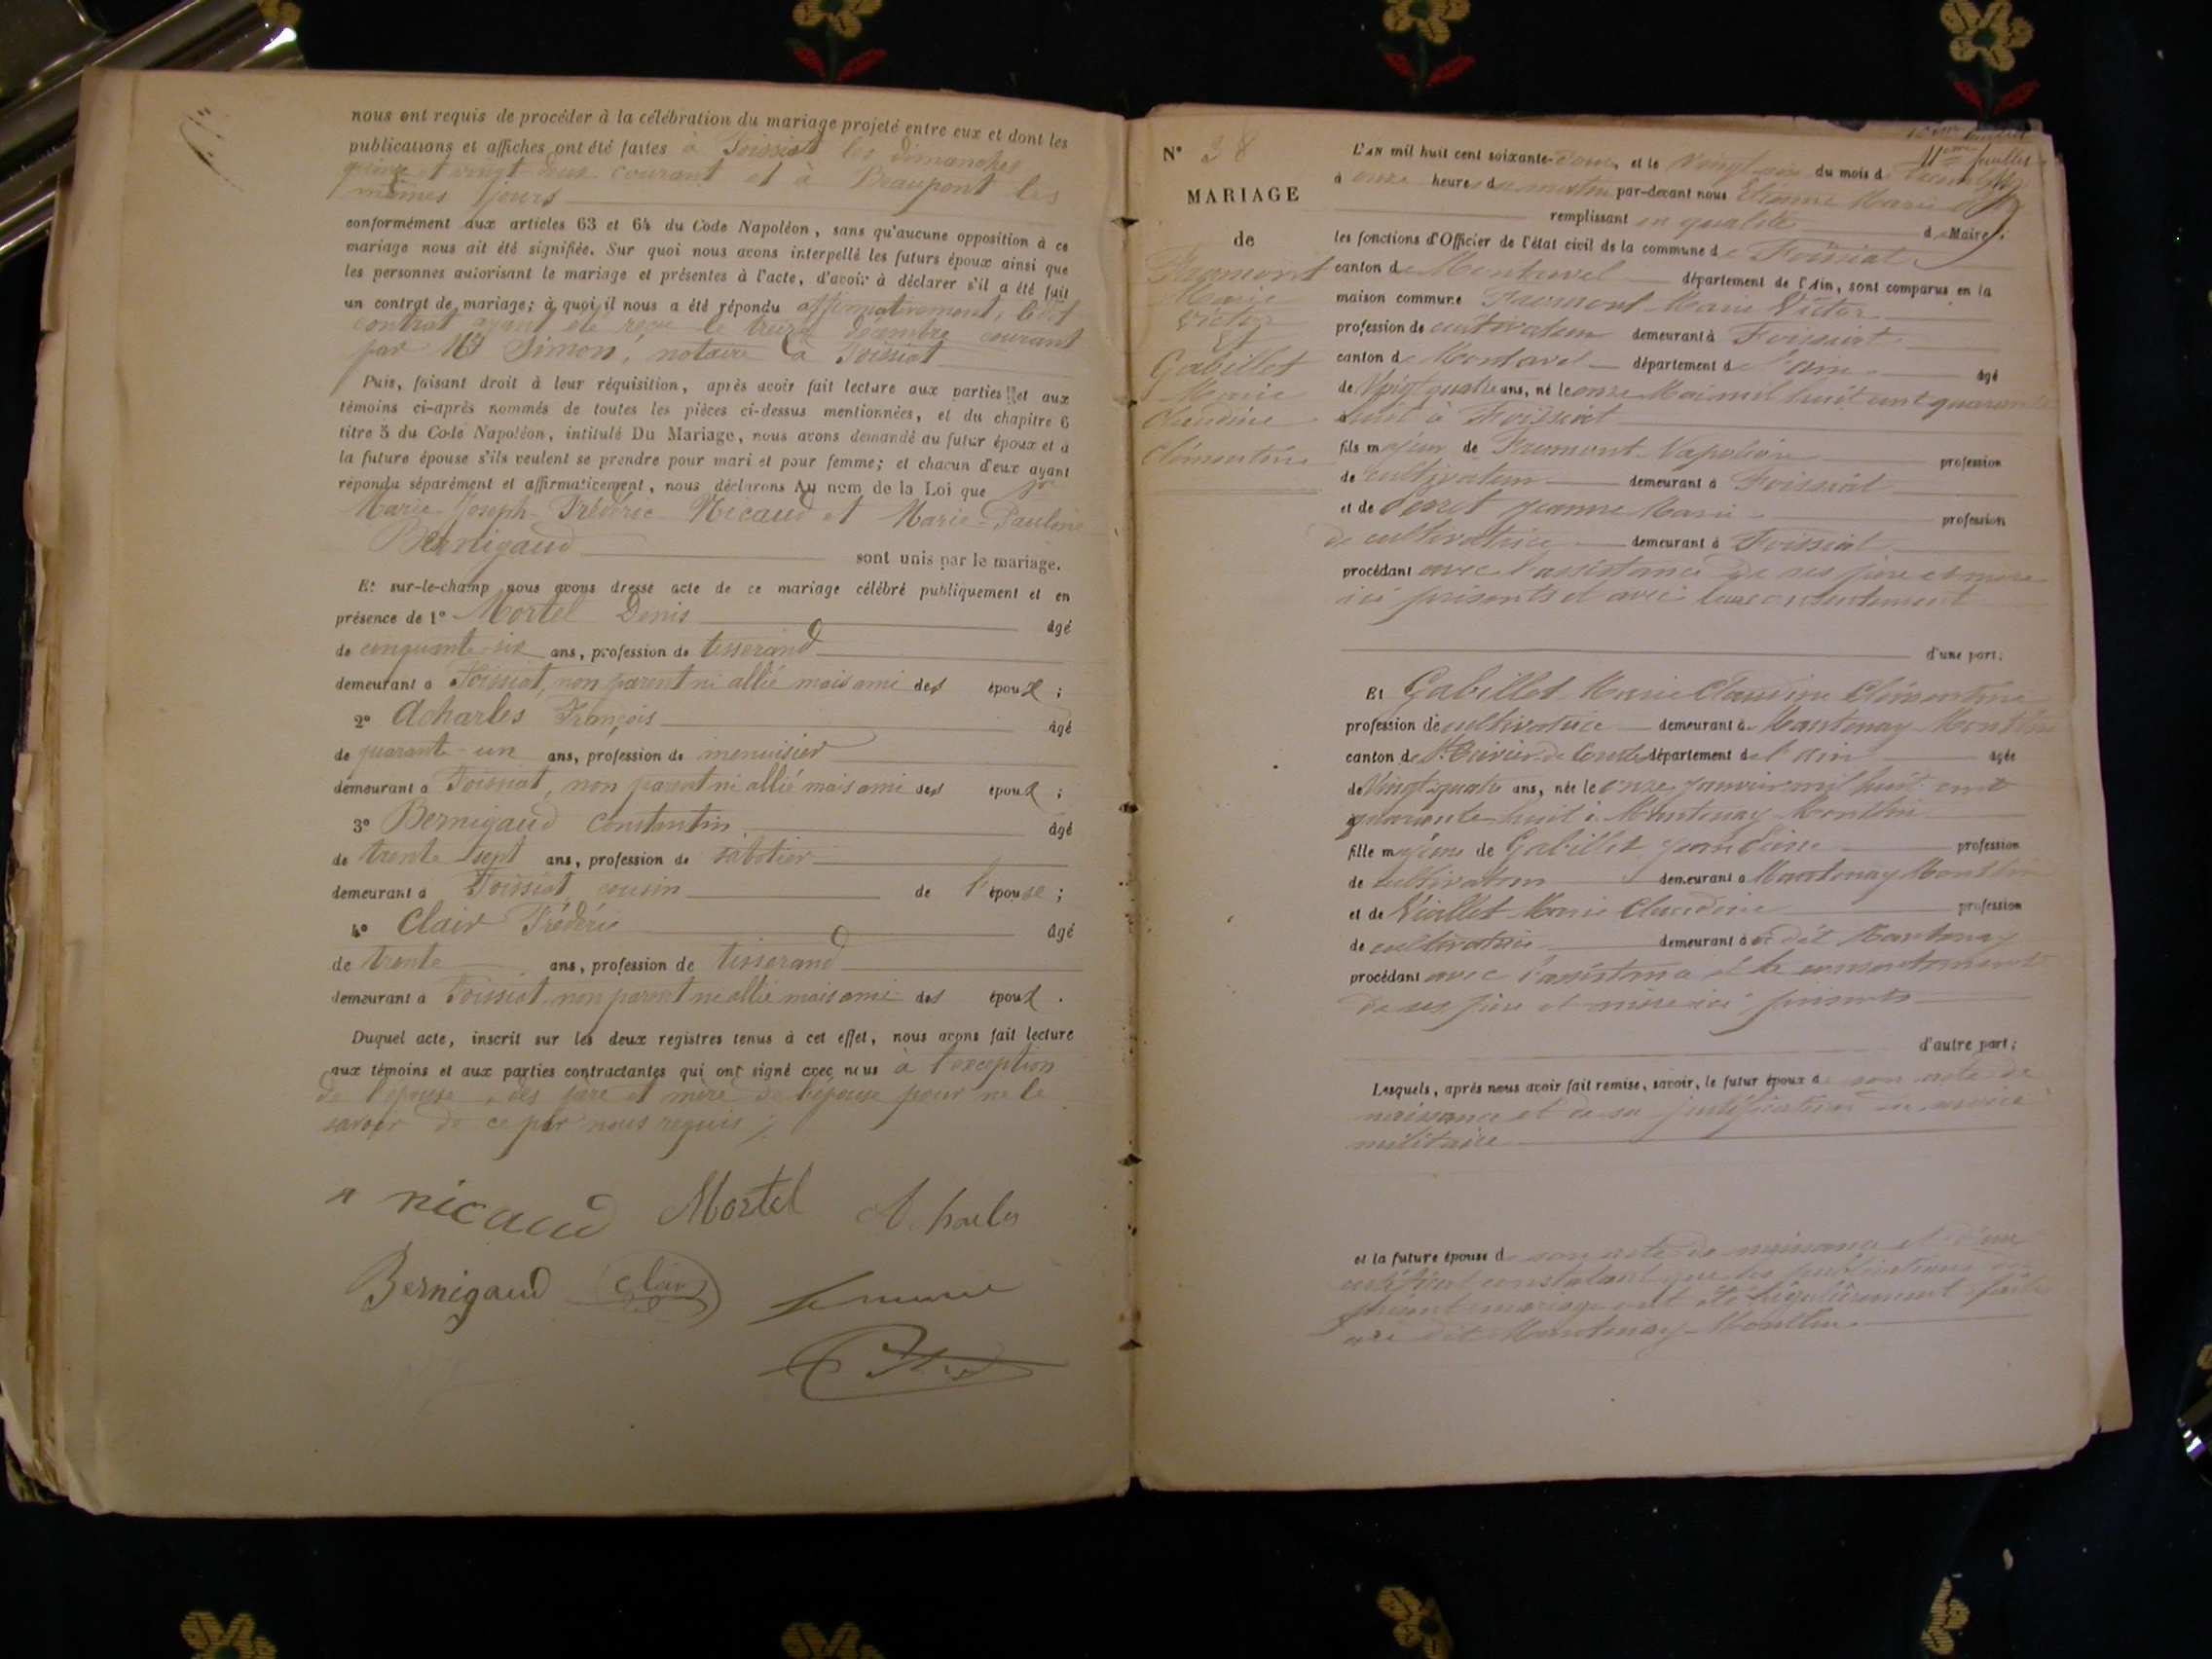 nous ont requis de procéder à la célébration du mariage projeté entre eux et dont les
publications et affiches ont été faites à Foissiat les dimanches
quinze et vingt deux courant et à Beaupont les
mêmes jours
conformément aux articles 63 et 64 du Code Napoléon, sans qu'aucune opposition à ce
mariage nous ait été signifiée. Sur quoi nous avons interpellé les futurs époux ainsi que
les personnes autorisant le mariage et présentes à l'acte, d'avoir à déclarer s'il a été fait
un contrat de mariage; à quoi il nous a été répondu affirmativement, le dit
contrat ayant été reçu le treize décembre courant
par Me Simon, notaire à Foissiat
Puis, faisant droit à leur réquisition, après avoir fait lecture aux parties et aux
témoins ci-après nommés de toutes les pièces ci-dessus mentionnées, et du chapitre 6
titre 5 du Code Napoléon, intitulé Du Mariage, nous avons demandé au futur époux et à
la future épouse s'ils veulent se prendre pour mari et pour femme; et chacun d'eux ayant
répondu séparément et affirmativement, nous déclarons Au nom de la Loi que
Marie Joseph Frédéric Nicaud et Marie-Pauline
Bernigaud sont unis par le mariage.
Et sur-le-champ nous avons dressé acte de ce mariage célébré publiquement et en
présence de 1° Mortel Denis âgé
de cinquante-six ans, profession de tisserand
demeurant à Foissiat, non parent ni allié mais ami des époux ;
2° Acharles François âgé
de quarante-un ans, profession de menuisier
demeurant à Foissiat, non parent ni allié mais ami des époux ;
3° Bernigaud Constantin âgé
de trente sept ans, profession de sabotier
demeurant à Foissiat, cousin de l'épouse ;
4° Clair Frédéric âgé
de trente ans, profession de tisserand
demeurant à Foissiat, non parent ni allié mais ami des époux .
Duquel acte, inscrit sur les deux registres tenus à cet effet, nous avons fait lecture
aux témoins et aux parties contractantes qui ont signé avec nous à l'exception
de l'épouse, des père et mère de l'épouse pour ne le
savoir de ce par nous requis ;
nicaud Mortel Acharles
Bernigaud Clair
N° 38
MARIAGE
de
Faymont
Marie
Victor
Et
Gabillet
Marie
Claudine
Clémentine
11eme feuillet
L'AN mil huit cent soixante- , et le vingt six du mois de
à onze heures du matin par-devant nous Etienne Marie
remplissant en qualité de Maire
les fonctions d'Officier de l'état civil de la commune de Foissiat
canton de Montrevel département de l'Ain, sont comparus en la
maison commune Marie Victor
profession de cultivateur demeurant à Foissiat
canton de Montrevel département de l'ain âgé
de Vingt quatre ans, né le onze Mai mil huit cent quarante
huit à Foissiat
fils majeur de Napoléon profession
de cultivateur demeurant à Foissiat
et de Jeanne Marie profession
de cultivatrice demeurant à Foissiat
procédant avec l'assistance de ses père et mère
ici présents et avec leur consentement
d'une part;
Et Gabillet Marie Claudine Clémentine
profession de cultivatrice demeurant à Mantenay Montlin
canton de St Trivier de Courtes département de l'ain âgée
de Vingt quatre ans, née le onze janvier mil huit cent
quarante huit à Mantenay Montlin
fille majeure de Gabillet profession
de cultivateur demeurant à Mantenay Montlin
et de Viallet Marie Claudine profession
de cultivatrice demeurant au dit Mantenay
procédant avec l'assistance et le consentement
de ses père et mère ici présents
d'autre part;
Lesquels, après nous avoir fait remise, savoir, le futur époux de son acte de
naissance et de sa justification du service
militaire
et la future épouse de son acte de naissance et d'un
certificat constatant que les publications du
présent mariage ont été régulièrement faites
au dit Mantenay-Montlin